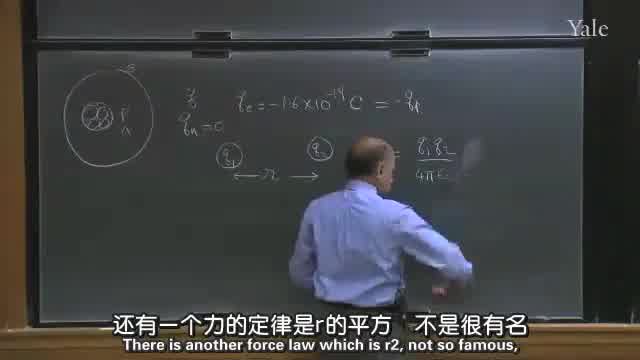 Yale
e
P
n
q
q_e = -1.6×10^{-19} C = -q_p
q_n = 0
q_1 q_2 = q_1 q_2
r 4πε
还有一个力的定律是r的平方 不是很有名
There is another force law which is r2, not so famous,